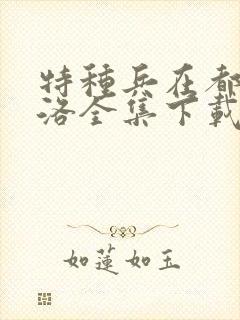 特種兵在都
洛全集下載
如蓮如玉